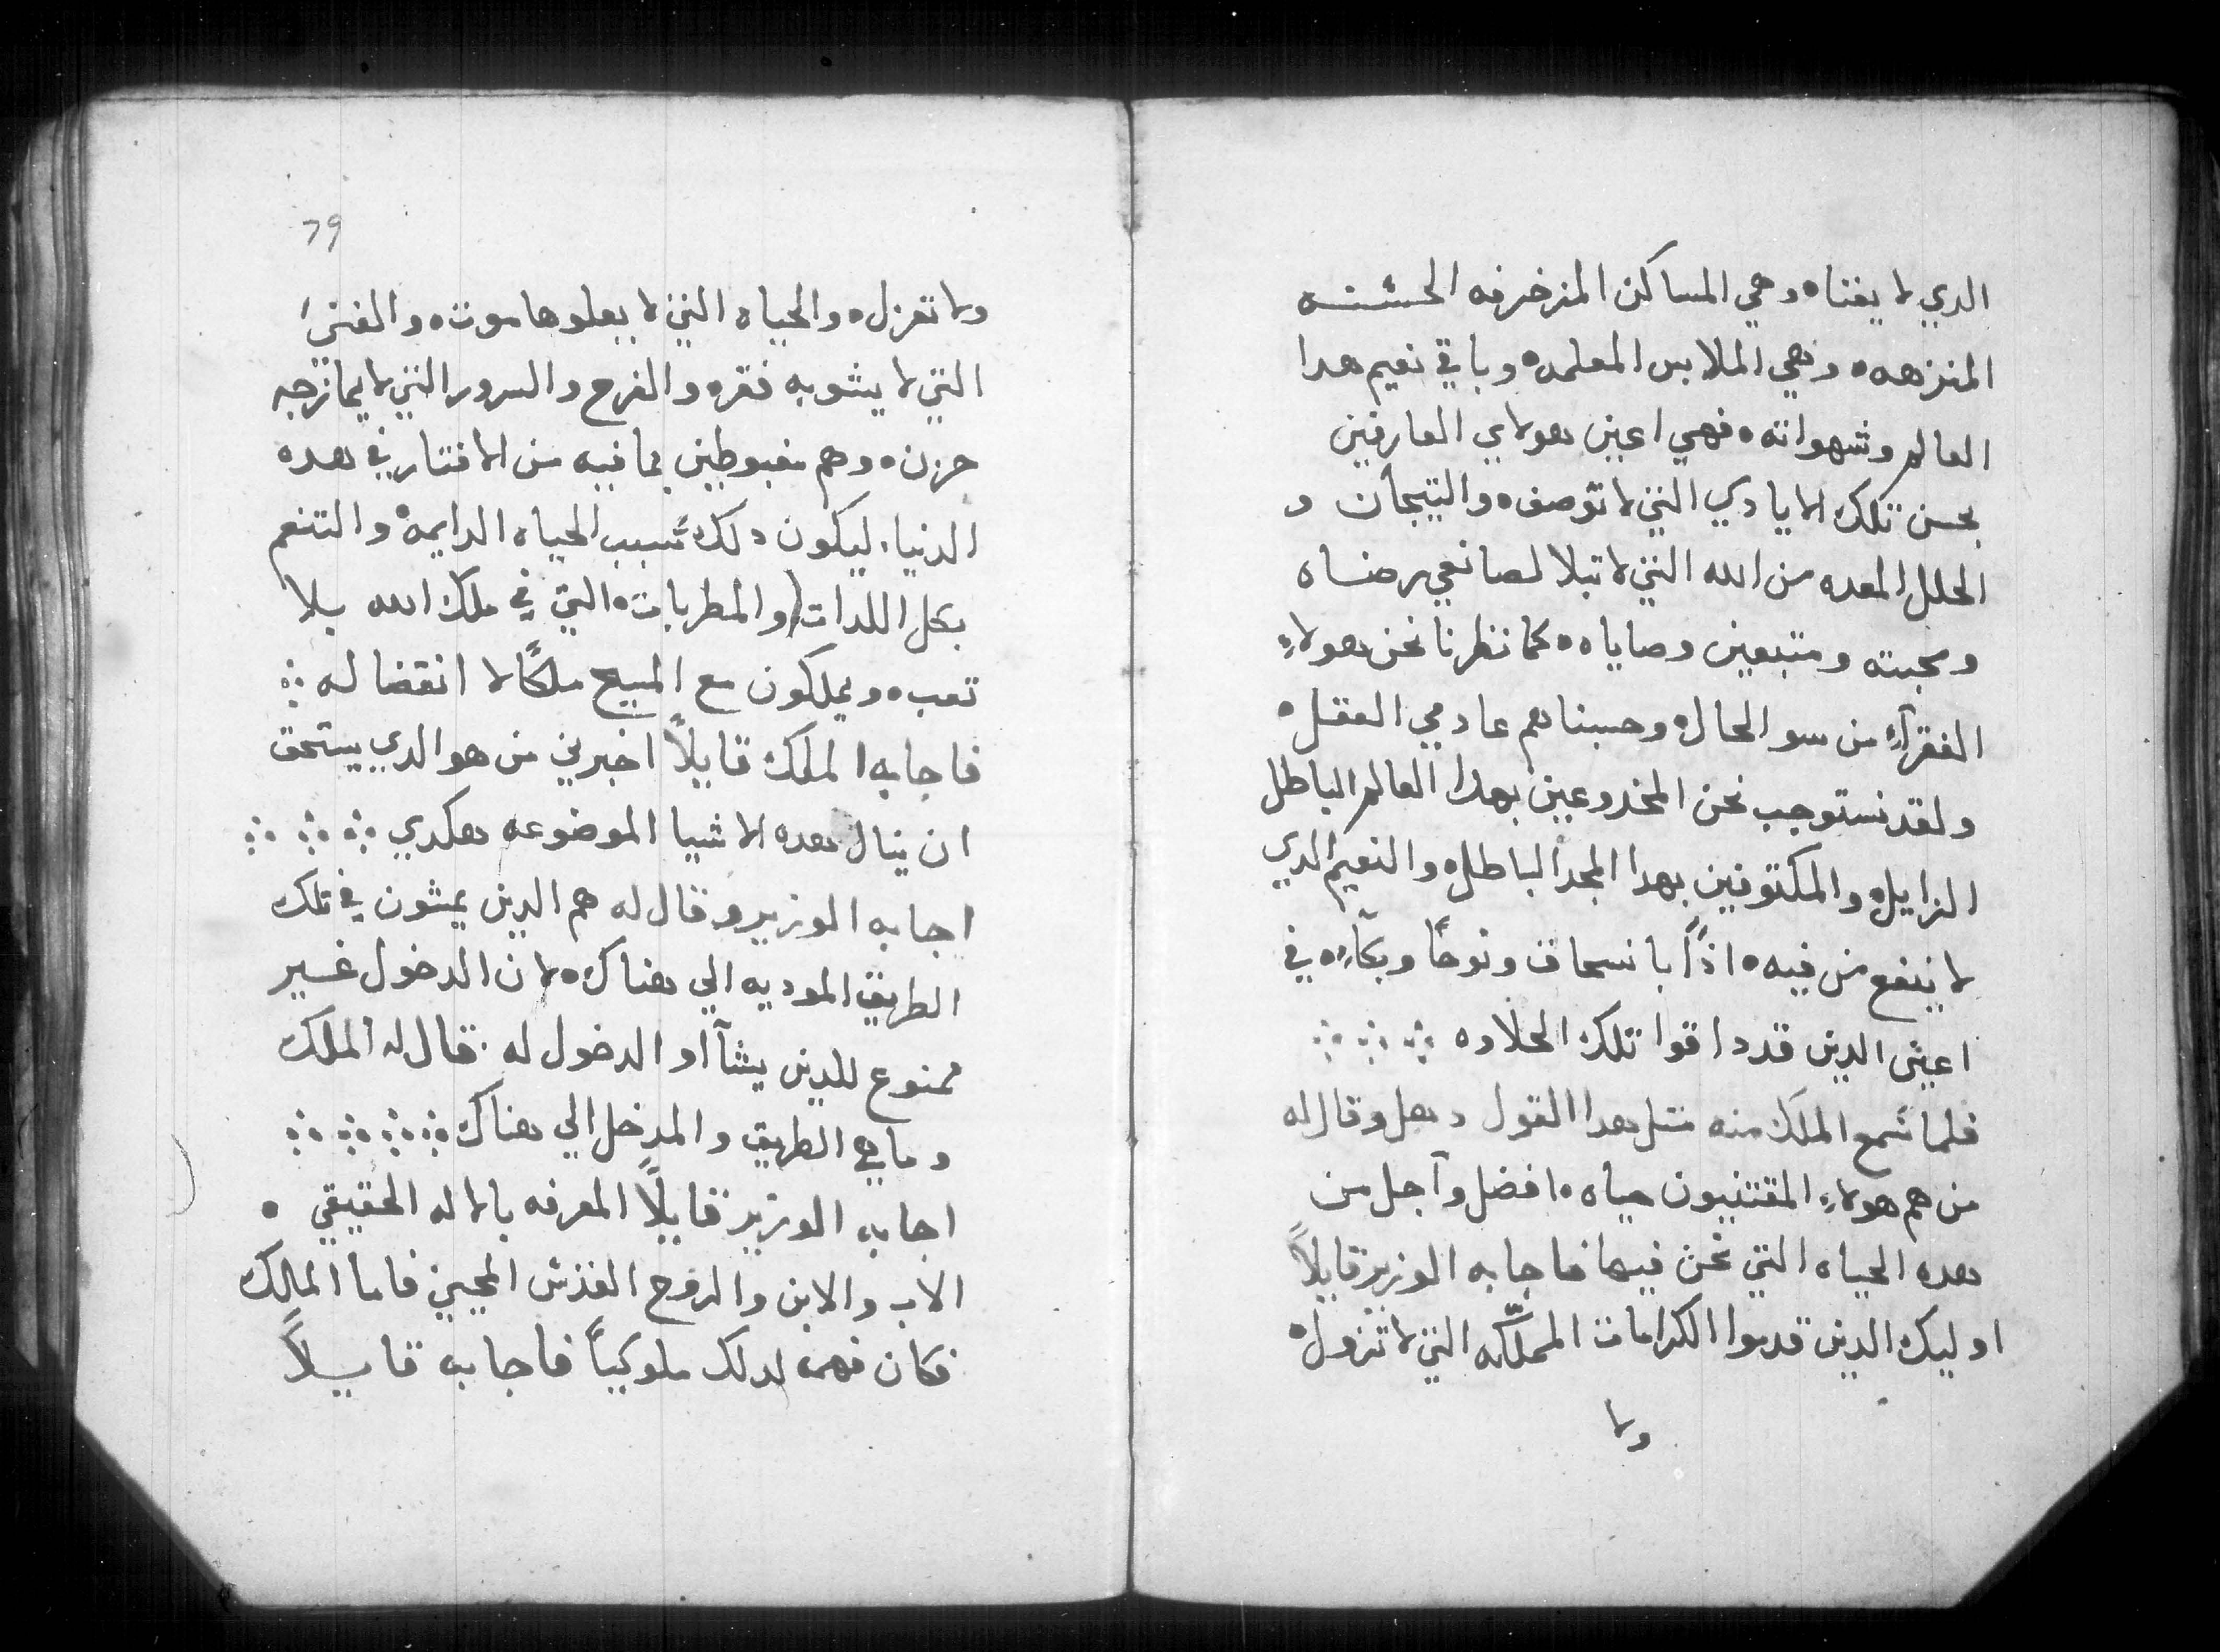 الدي لا يفناه وهي المساكن المزخرفه الحسنه
المنزهه٥ وهي الملابس المعلمه٥ وباقي نعيم هدا
العالم وشهواته٥ فهي اعين هولاي العارفين
بحسن تلك الايادي التي لا توصف٥ والتيجان و
الحلل المعده من الله التي لا تبلا لصانعي رضاه
ومحبته ومتبعين وصاياه٥ كما نظرنا نحن هولاءِ
الفقرآءِ من سو الحال٥ وحسبناهم عادمي العقل٥
ولقد نستوجب نحن المخدوعين بهدا العالم الباطل
الزايل٥ والمكتوفين بهدا المجد الباطل٥ والنعيم الدي
لا ينفع من فيه٥ اذًا بانسحاق ونوحًا وبكآءِ٥ في
اعين الدين قد داقوا تلك الحلاوه ჻ ჻ ჻
فلما سمع الملك منه مثل هدا القول دهل وقال له
من هم هولاءِ المقتنيون حياه٥ افضل وآجل من
هده الحياه التي نحن فيها فاجابه الوزير قايلاً
اوليك الدين قدموا الكرامات المملكه التي لا تزول٥
ولا
79
ولا تعزل٥ والحياه التي لا يعلوها موت٥ والغني
التي لا يشوبه فقره والفرح والسرور التي لا يمازجه
حزن٥ وهم مغبوطين بما فيه من الافتار في هده
الدنيا، ليكون دلك سبب الحياه الدايمه٥ والتنعم
بكل اللدات والمطربات٥ التي في ملك الله بلا
تعب٥ ويملكون مع المسيح ملكًا لا انقضا له ჻
فاجابه الملك قايلاً اخبرني من هو الدي يستحق
ان ينال هده الاشيا الموضوعه هكدي ჻ ჻ ჻
اجابه الوزير وقال له هم الدين يمشون في تلك
الطريق الموديه الي هناك٥ لان الدخول غير
ممنوع للدين يشآاو الدخول له. قال له الملك
وما هي الطريق والمدخل الي هناك ჻ ჻ ჻ ჻
اجابه الوزير قايلاً المعرفه بالاله الحقيقي ٥
الاب والابن والروح القدس المحيي فاما الملك
فكان فهمه لدلك ملوكيًا فاجابه قايلاً